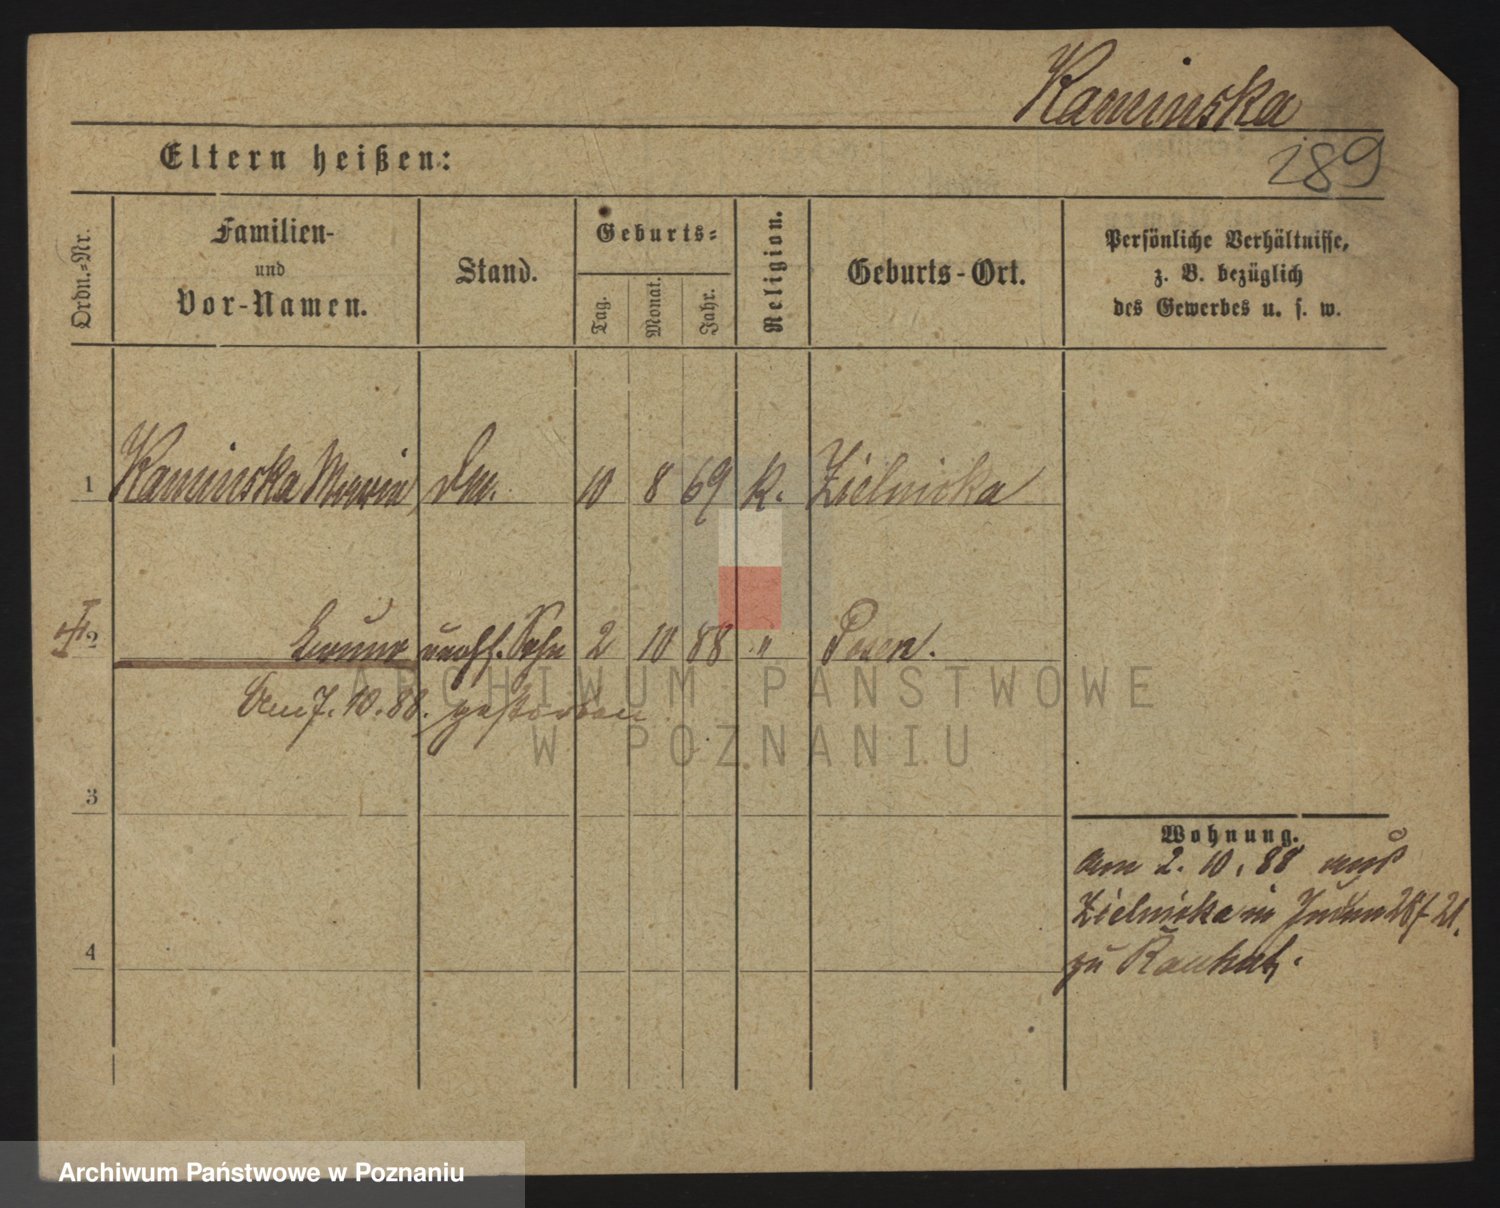 Kaminska
289
Eltern heißen:
Ordn.-Nr.
Familien-
und
Vor-Namen.
Stand.
Geburts-
Tag.
Monat.
Jahr.
Religion.
Geburts-Ort.
Persönliche Verhältnisse,
z. B. bezüglich
des Gewerbes u. s. w.
1 Kaminska Maria, 10 8 69 K. Zielnicka
2 unehl. Sohn 2 10 88 " Posen.
Am 7. 10. 88. gestorben
3
4
Wohnung.
am 2. 10. 88 aus
Zielnicka in
zu
ARCHIWUM PAŃSTWOWE
W POZNANIU
Archiwum Państwowe w Poznaniu